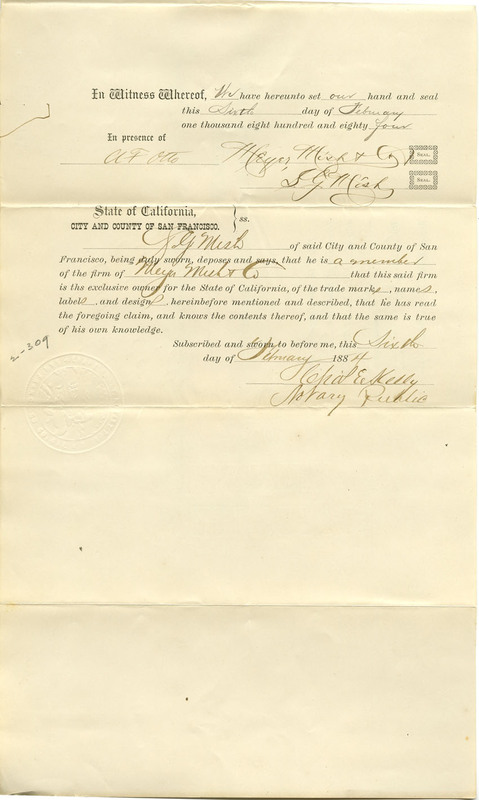 In Witness Whereof, We have hereunto set our hand and seal
this Sixth day of February
one thousand eight hundred and eighty four
In presence of
A F Otto
Meyer Mish & Co
SEAL.
S G Mish
SEAL.
State of California,
CITY AND COUNTY OF SAN FRANCISCO.
ss.
S G Mish of said City and County of San
Francisco, being duly sworn, deposes and says, that he is a member
of the firm of Meyer Mish & Co that this said firm
is ths exclusive owner for the State of California, of the trade marks, names,
labels, and designs, hereinbefore mentioned and described, that he has read
the foregoing claim, and knows the contents thereof, and that the same is true
of his own knowledge.
Subscribed and sworn to before me, this Sixth
day of February 1884
Chas E Kelly
Notary Public
2-309